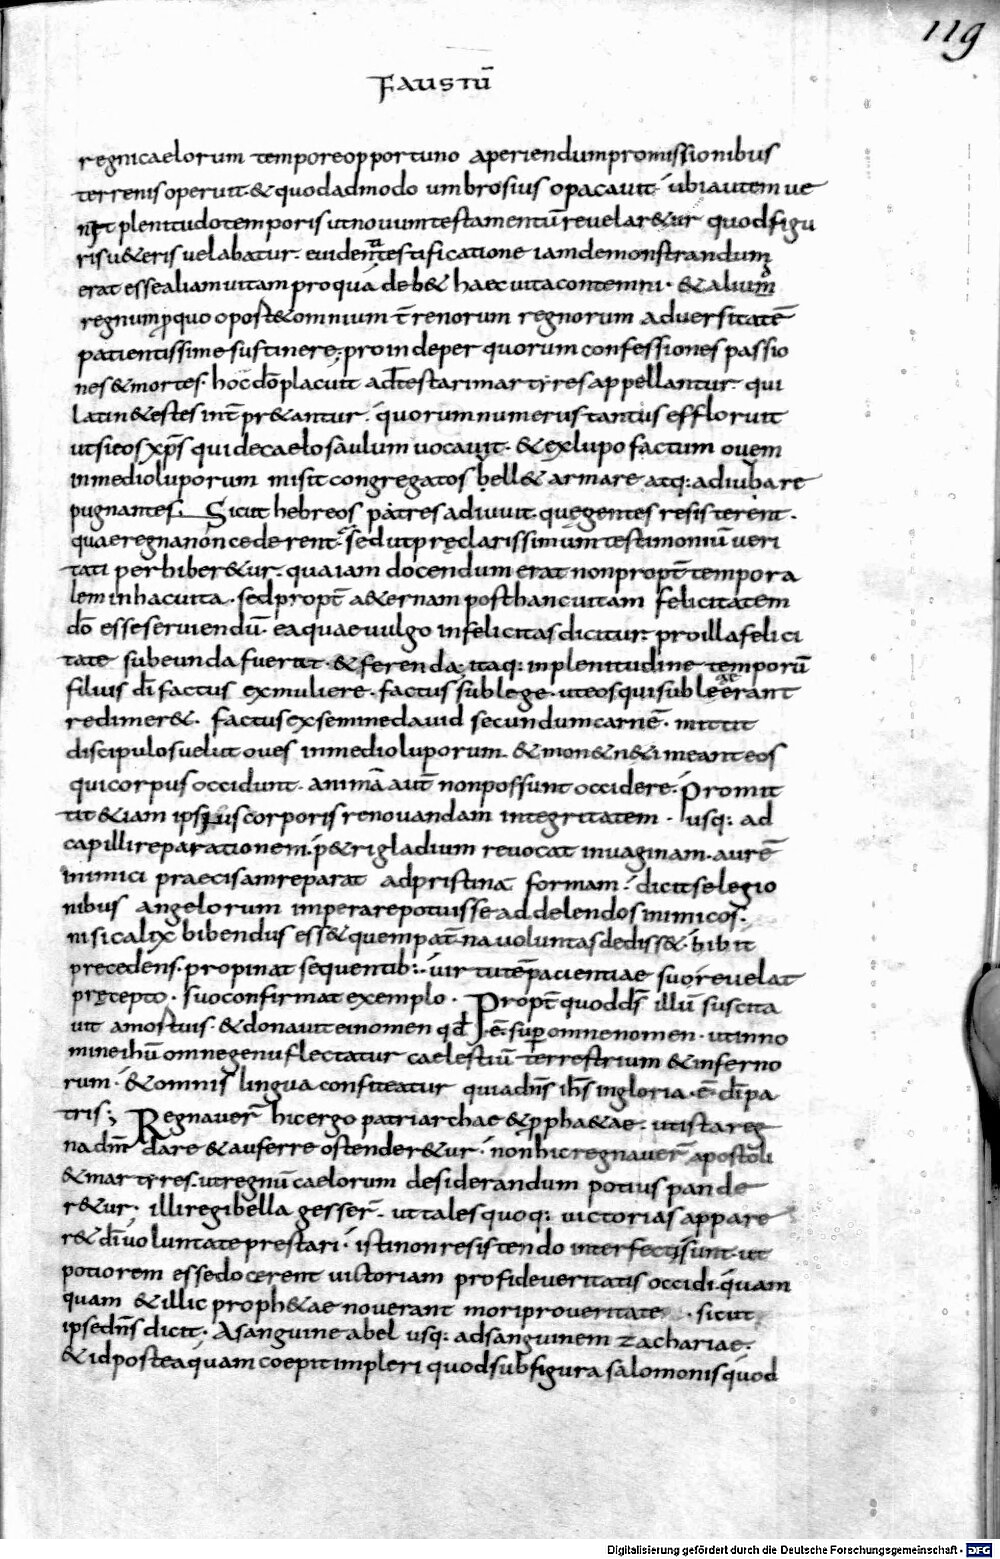 119
FAUSTŪ
regni caelorum tempore opportuno aperiendum promissionibus
terrenis operuit· & quodadmodo umbrosius opacauit· ubi autem ue
nit plenitudo temporis ut nouum testamentū reuelar&ur quod figu
ris u&eris uelabatur· euidenti testificatione iam demonstrandum
erat esse aliam uitam pro qua deb& haec uita contemni· & alium
regnum pquo oport& omnium t̄renorum regnorum aduersitatē
patientissime sustinere; proinde per quorum confessiones passio
nes & mortes· hoc dō placuit adtestari martyres appellantur· qui
latin& estes int̄pr&antur· quorum numerus tantus effloruit
ut si eos xp̄s qui de caelo saulum uocauit· & ex lupo factum ouem
in medio luporum misit congregatos bell& armare atq: adiubare
pugnantes· Sicut hebreos patres adiuuit· quę gentes resisterent·
quae regna non cederent· sed ut pręclarissimum testimoniū ueri
tati perhiber&ur· quā iam docendum erat non propt̄ tempora
lem in hac uita· sed propt̄ a&ernam post hanc uitam felicitatem
dō esse seruiendū· ea quae uulgo infelicitas dicitur· pro illa felici
tate subeunda fuerit· & ferenda itaq: in plenitudine temporū
filius dī factus ex muliere· factus sub lege· ut eos qui sub lege erant
redimer&· factus ex semine dauid secundum carnē· mittit
discipulos uelut oues in medio luporum & mon& n& imeant eos
qui corpus occidunt· animā aut̄ non possunt occidere· Promit
tit & iam ipsius corporis renouandam integritatem· usq: ad
capilli reparationem· p&ri gladium reuocat in uaginam· aurē
inimici praecisam reparat ad pristinā formam· dicit se legio
nibus angelorum imperare potuisse ad delendos inimicos·
nisi calix bibendus ess& quem pat̄na uoluntas dediss&· bibit
precedens· propinat sequentib:· uirtutē pacientiae suo reuelat
prętepto· suo confirmat exemplo· Propt̄ quod ds̄ illū suscita
uit amostuis· & donauit ei nomen qđ ē sup omne nomen· ut in no
mine ihū omne genu flectatur caelestiū terrestrium & inferno
rum· & omnis lingua confiteatur quia dn̄s ih̄s in gloria· ē· dī pa
tris; Regnauer̄ hic ergo patriarchae & pph&ae· ut ista reg
na dn̄m dare & auferre ostender&ur· non hic regnauer̄ apostoli
& martyres· ut regnū caelorum desiderandum potius pande
r&ur· illi regibella gesser̄· ut tales quoq: uictorias appare
r& dī uoluntate prestari· isti non resistendo interfecti sunt· ut
potiorem esse docerent uictoriam pro fide ueritatis occidi· quam
quam & illic proph&ae nouerant mori pro ueritate· sicut
ipse dn̄s dicit· A sanguine abel usq: ad sanguinem zachariae·
& id postea quam coepit impleri quod sub figura salomonis quod
Digitalisierung gefördert durch die Deutsche Forschungsgemeinschaft - DFG